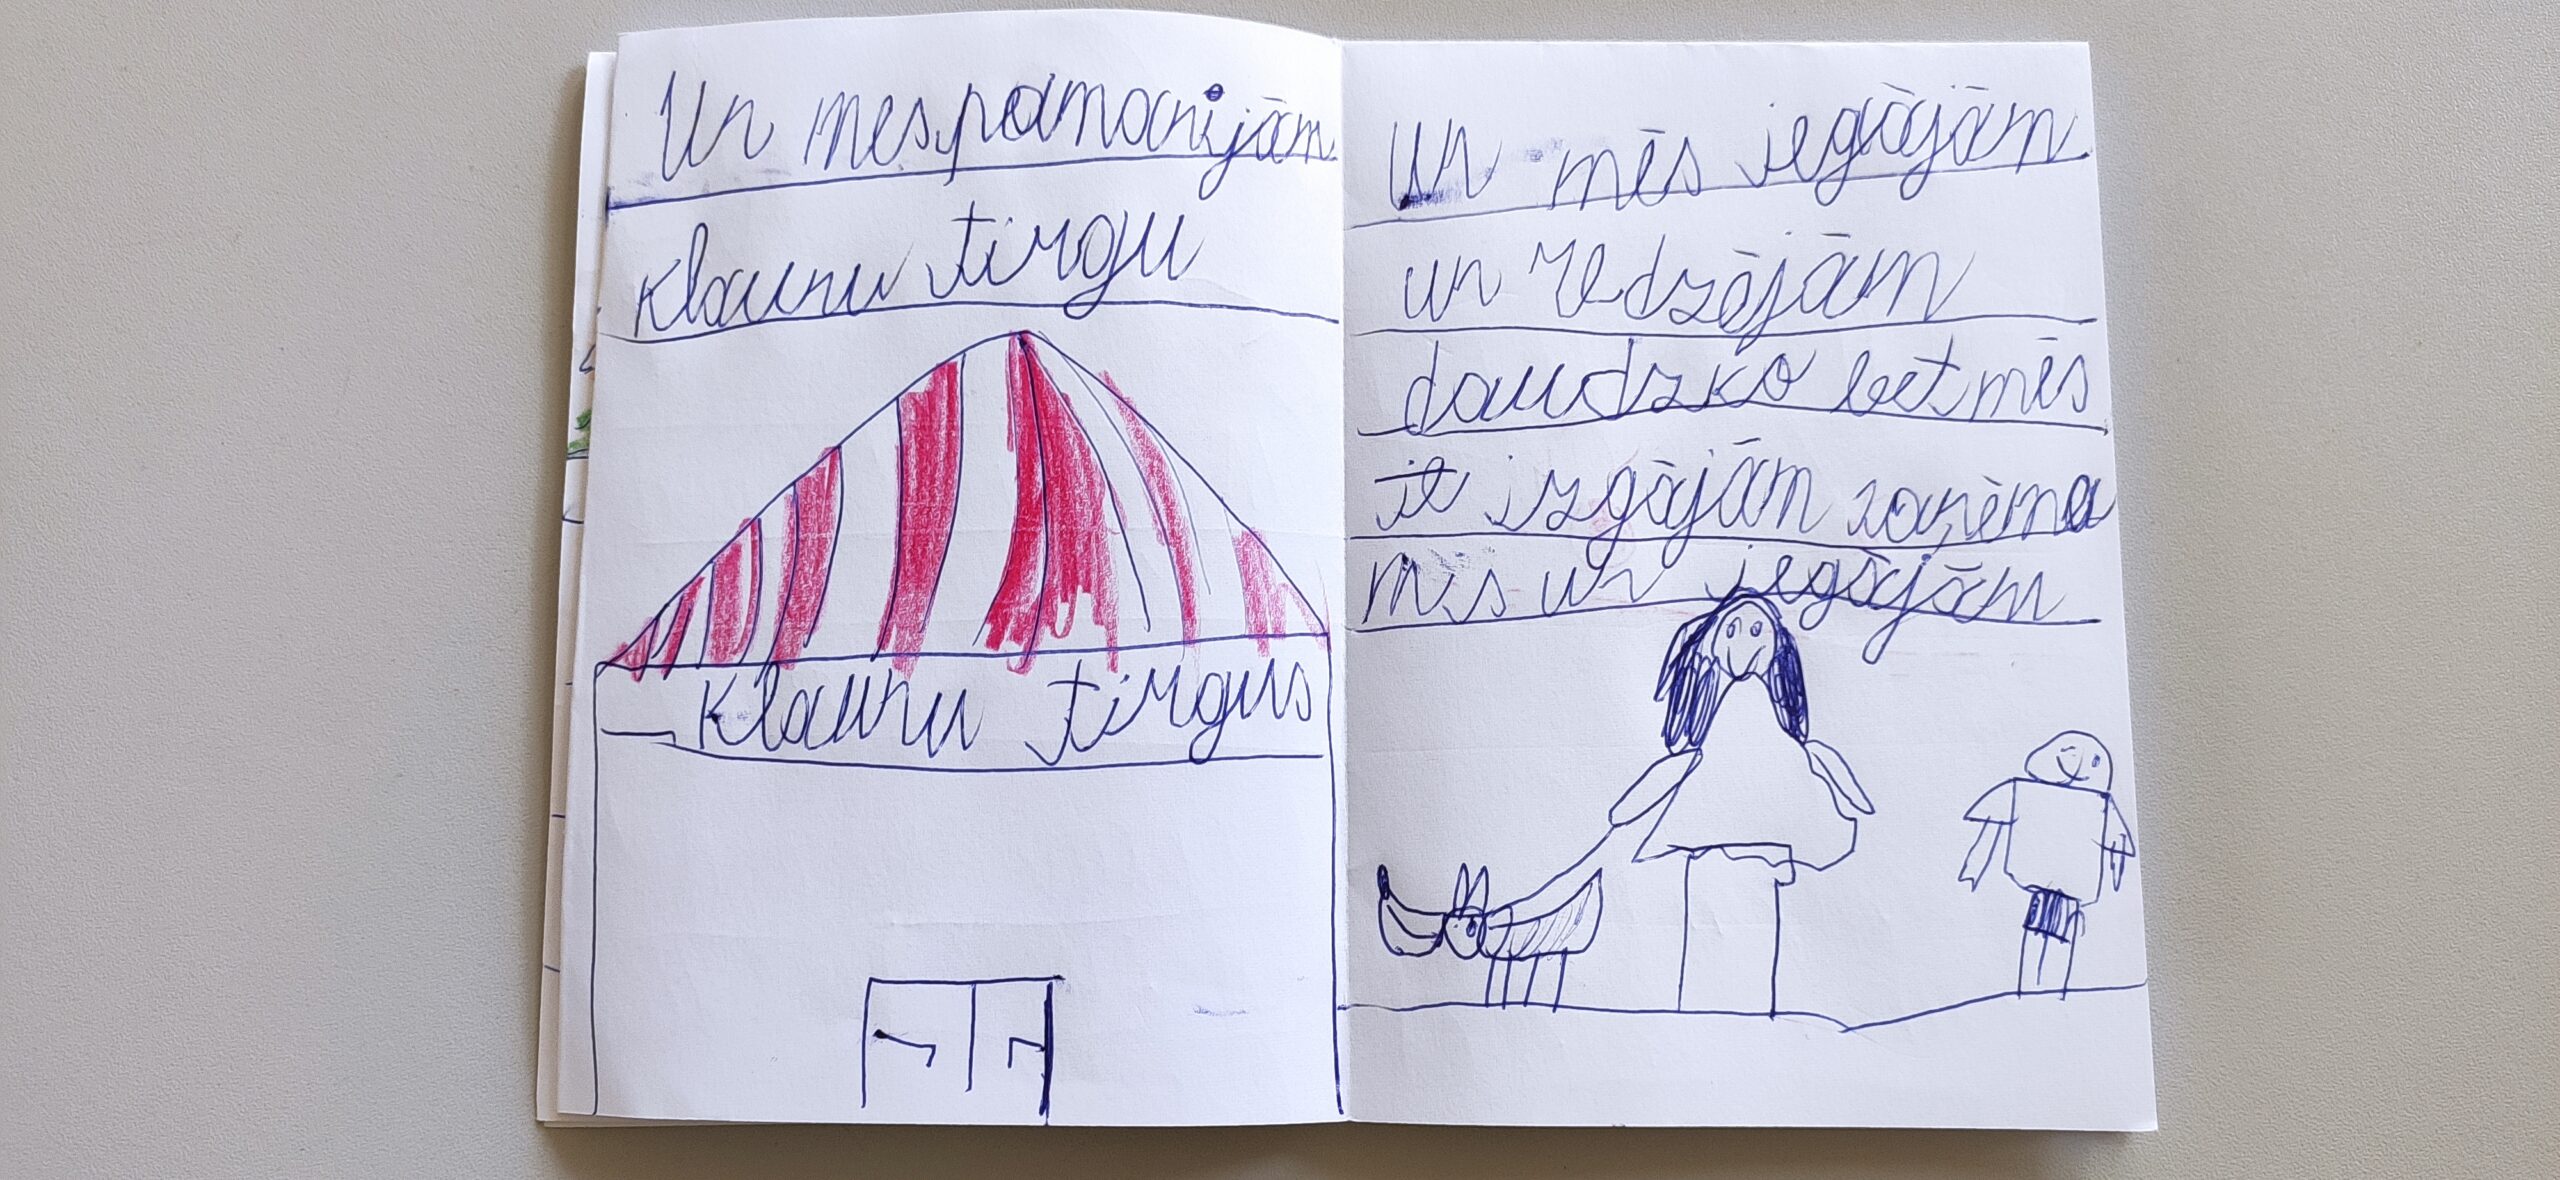 Un mes pamanijām
klaunu tirgu
klaunu tirgus
Un mēs iegājām
un redzējām
daudzko bet mēs
it izgājām zaņēma
mēs un iegājām